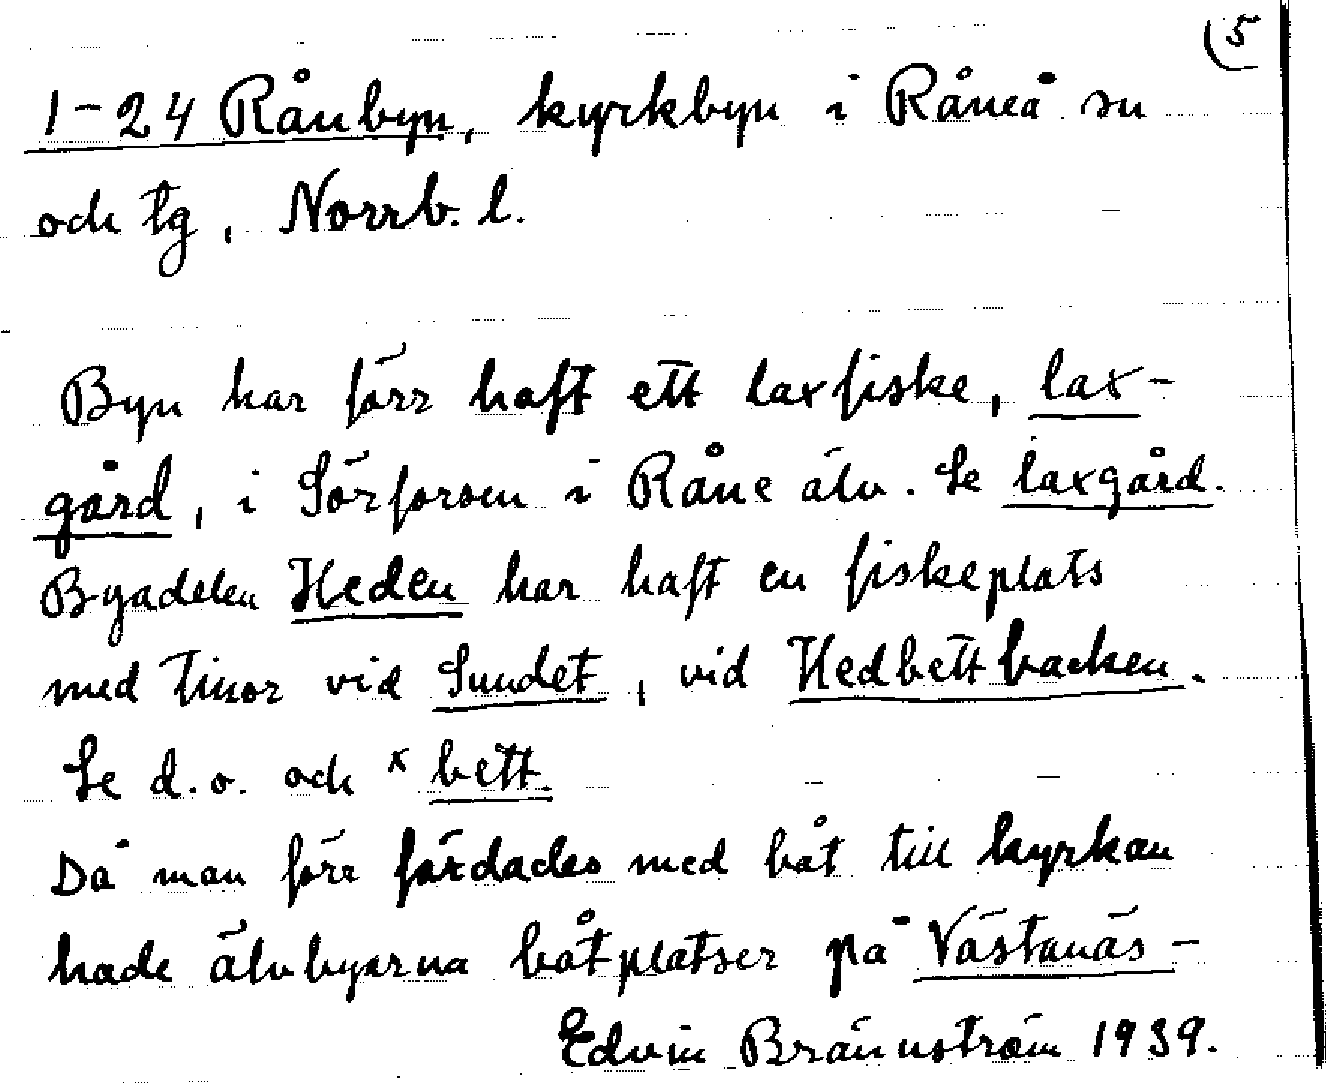 (5
1-24 Rånbyn, kyrkbyn i Råneå sn
och tg, Norrb. l.
Byn har förr haft ett laxfiske, lax-
gård, i Sörforsen i Råne älv. Se laxgård.
Byadelen Heden har haft en fiskeplats
med tinor vid Sundet, vid Hedbettbacken.
Se d.o. och x bett.
Då man förr färdades med båt till kyrkan
hade älvbyarna båtplatser på Västanäs-
Edvin Brännström 1939.